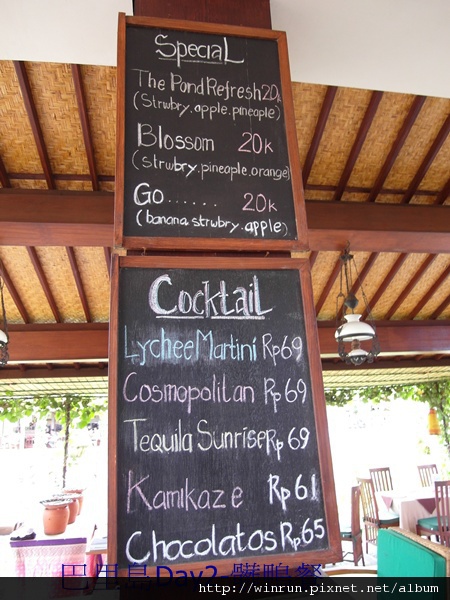 Special
The Pond Refresh 20k
(strwbry.apple.pineapple)
Blossom 20k
(strwbry.pineapple.orange)
Go...... 20k
(banana.strwbry.apple)
Cocktail
Lychee Martini Rp69
Cosmopolitan Rp69
Tequila Sunrise Rp69
Kamikaze Rp61
Chocolatos Rp65
峇里島Day2-髒鴨餐
http://winrun.pixnet.net/album